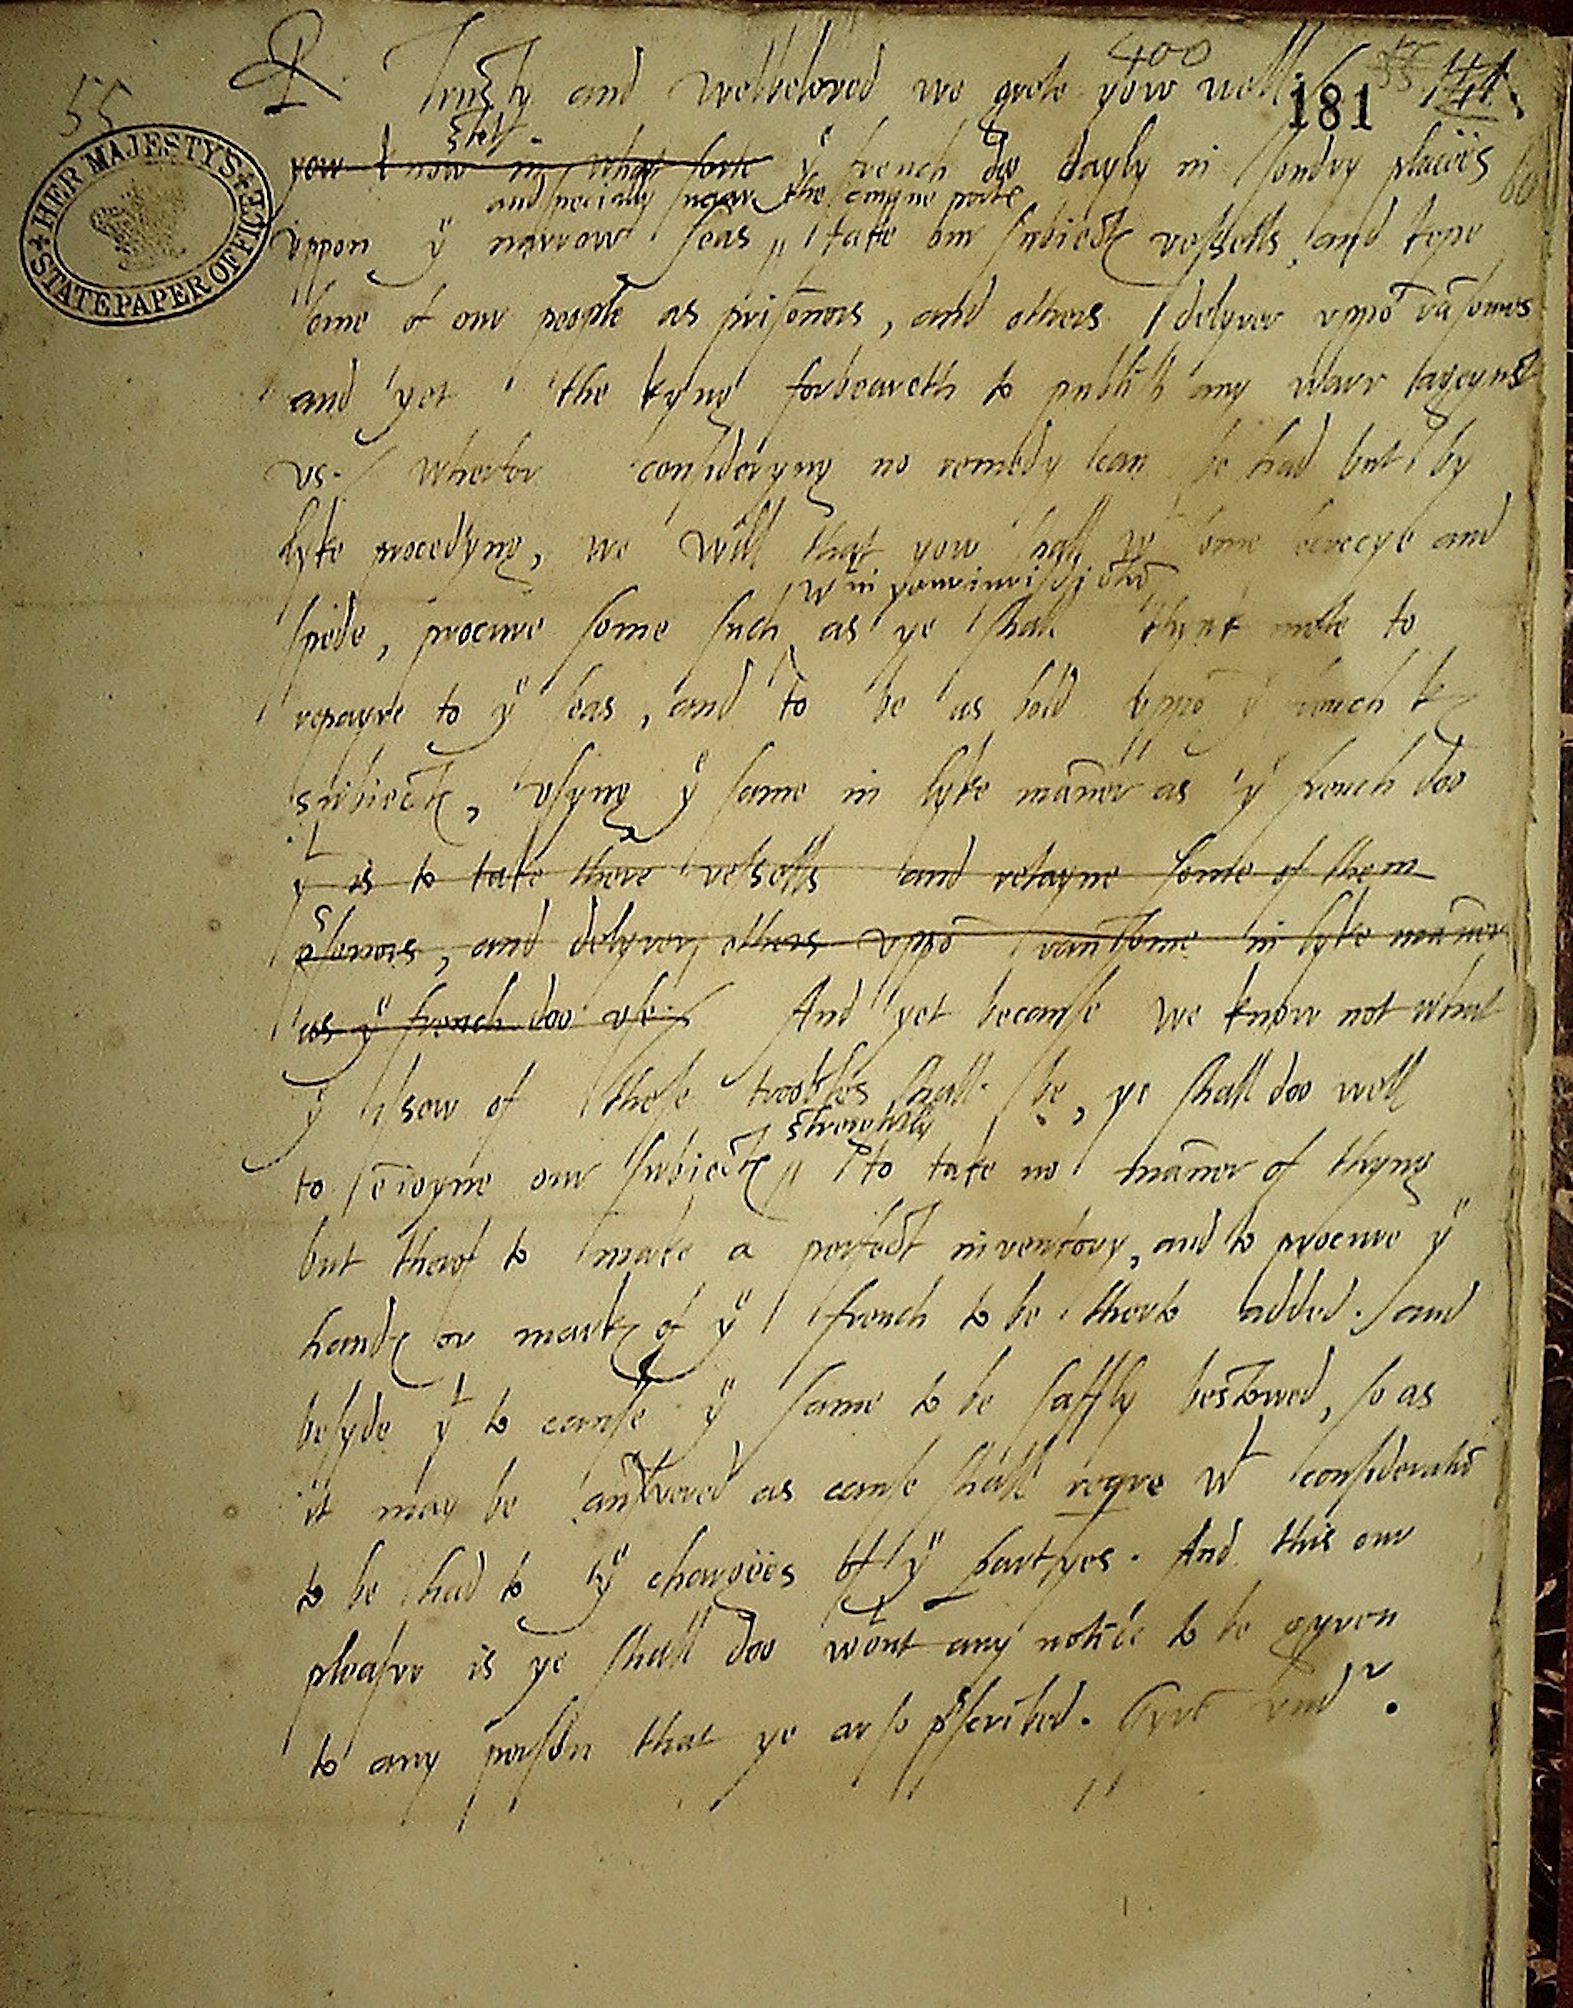 55
400
181
HER MAJESTY'S STATE PAPER OFFICE
R. Trusty and welbeloved we grete yow well
yow know in what sorte yͤ french do dayly in sondry placees
and specially
uppon yͤ narrow seas take our subiectes vessells, and kepe
some of our people as prisonors, and others delyver uppō rāsomes
and yet the kyng forbeareth to publish any warr ageynst
vs. wherfor consideryng no remedy can be had but by
lyke procedyng, we will that yow shall wͭ some secrecye and
wͭin your iurisdictiō
spede, procure some such as ye shall thynk mete to
repayre to yͤ seas, and to be as bold uppō yͤ french k
subiectes, usyng yͤ same in lyke māner as yͤ french doo
yͭ is to take there vessells and retayne some of them
prisonors, and delyver others uppō ransome in lyke māner
as yͤ french doo use. And yet because we know not what
yͤ issew of these trobles shall be, ye shall doo well
streightly
to ēioyne our subiectes to take no māner of thyng
but therof to make a perfect inventory, and to procure yͤ
handes or markes of yͤ french to be therto added. and
besyde yͭ to cause yͤ same to be saffly bestowed, so as
it may be answered as cause shall reqre wͭ consideratiō
to be had to yͤ chargees of yͤ partyes. And this our
pleasur is ye shall doo wͭout any notice to be gyven
to any person that ye ar so pscribed. Gyvē vndʳ.